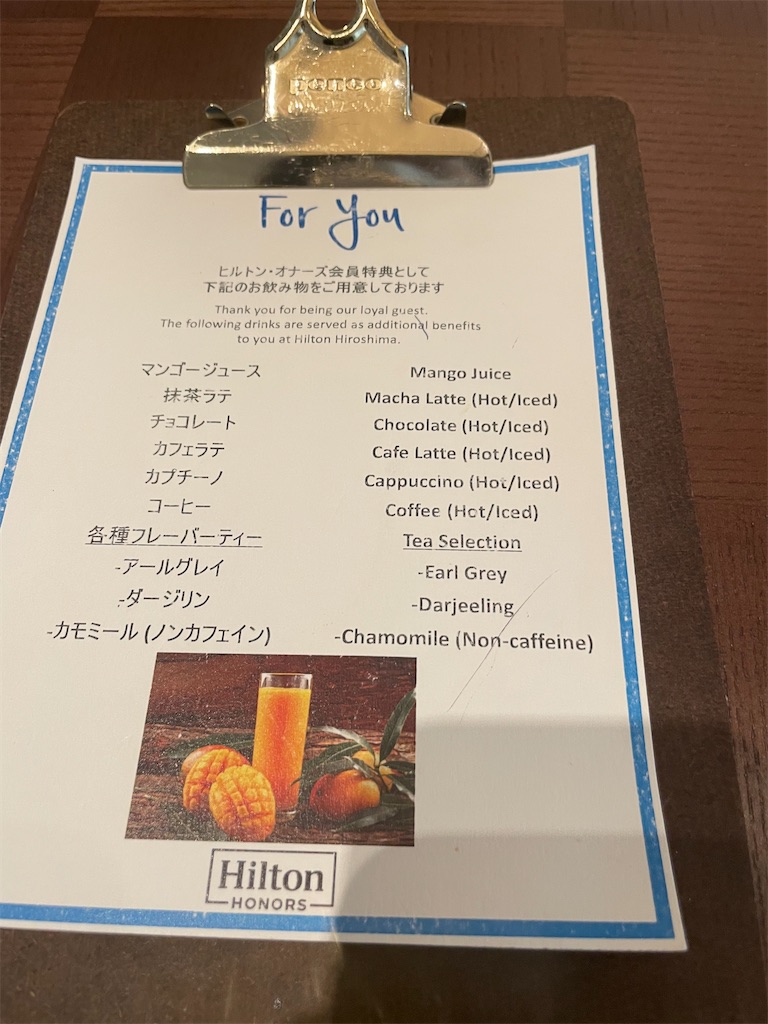 penco
For You
ヒルトン・オナーズ会員特典として
下記のお飲み物をご用意しております
Thank you for being our loyal guest.
The following drinks are served as additional benefits
to you at Hilton Hiroshima.
マンゴージュース Mango Juice
抹茶ラテ Macha Latte (Hot/Iced)
チョコレート Chocolate (Hot/Iced)
カフェラテ Cafe Latte (Hot/Iced)
カプチーノ Cappuccino (Hot/Iced)
コーヒー Coffee (Hot/Iced)
各種フレーバーティー Tea Selection
-アールグレイ -Earl Grey
-ダージリン -Darjeeling
-カモミール (ノンカフェイン) -Chamomile (Non-caffeine)
Hilton
HONORS